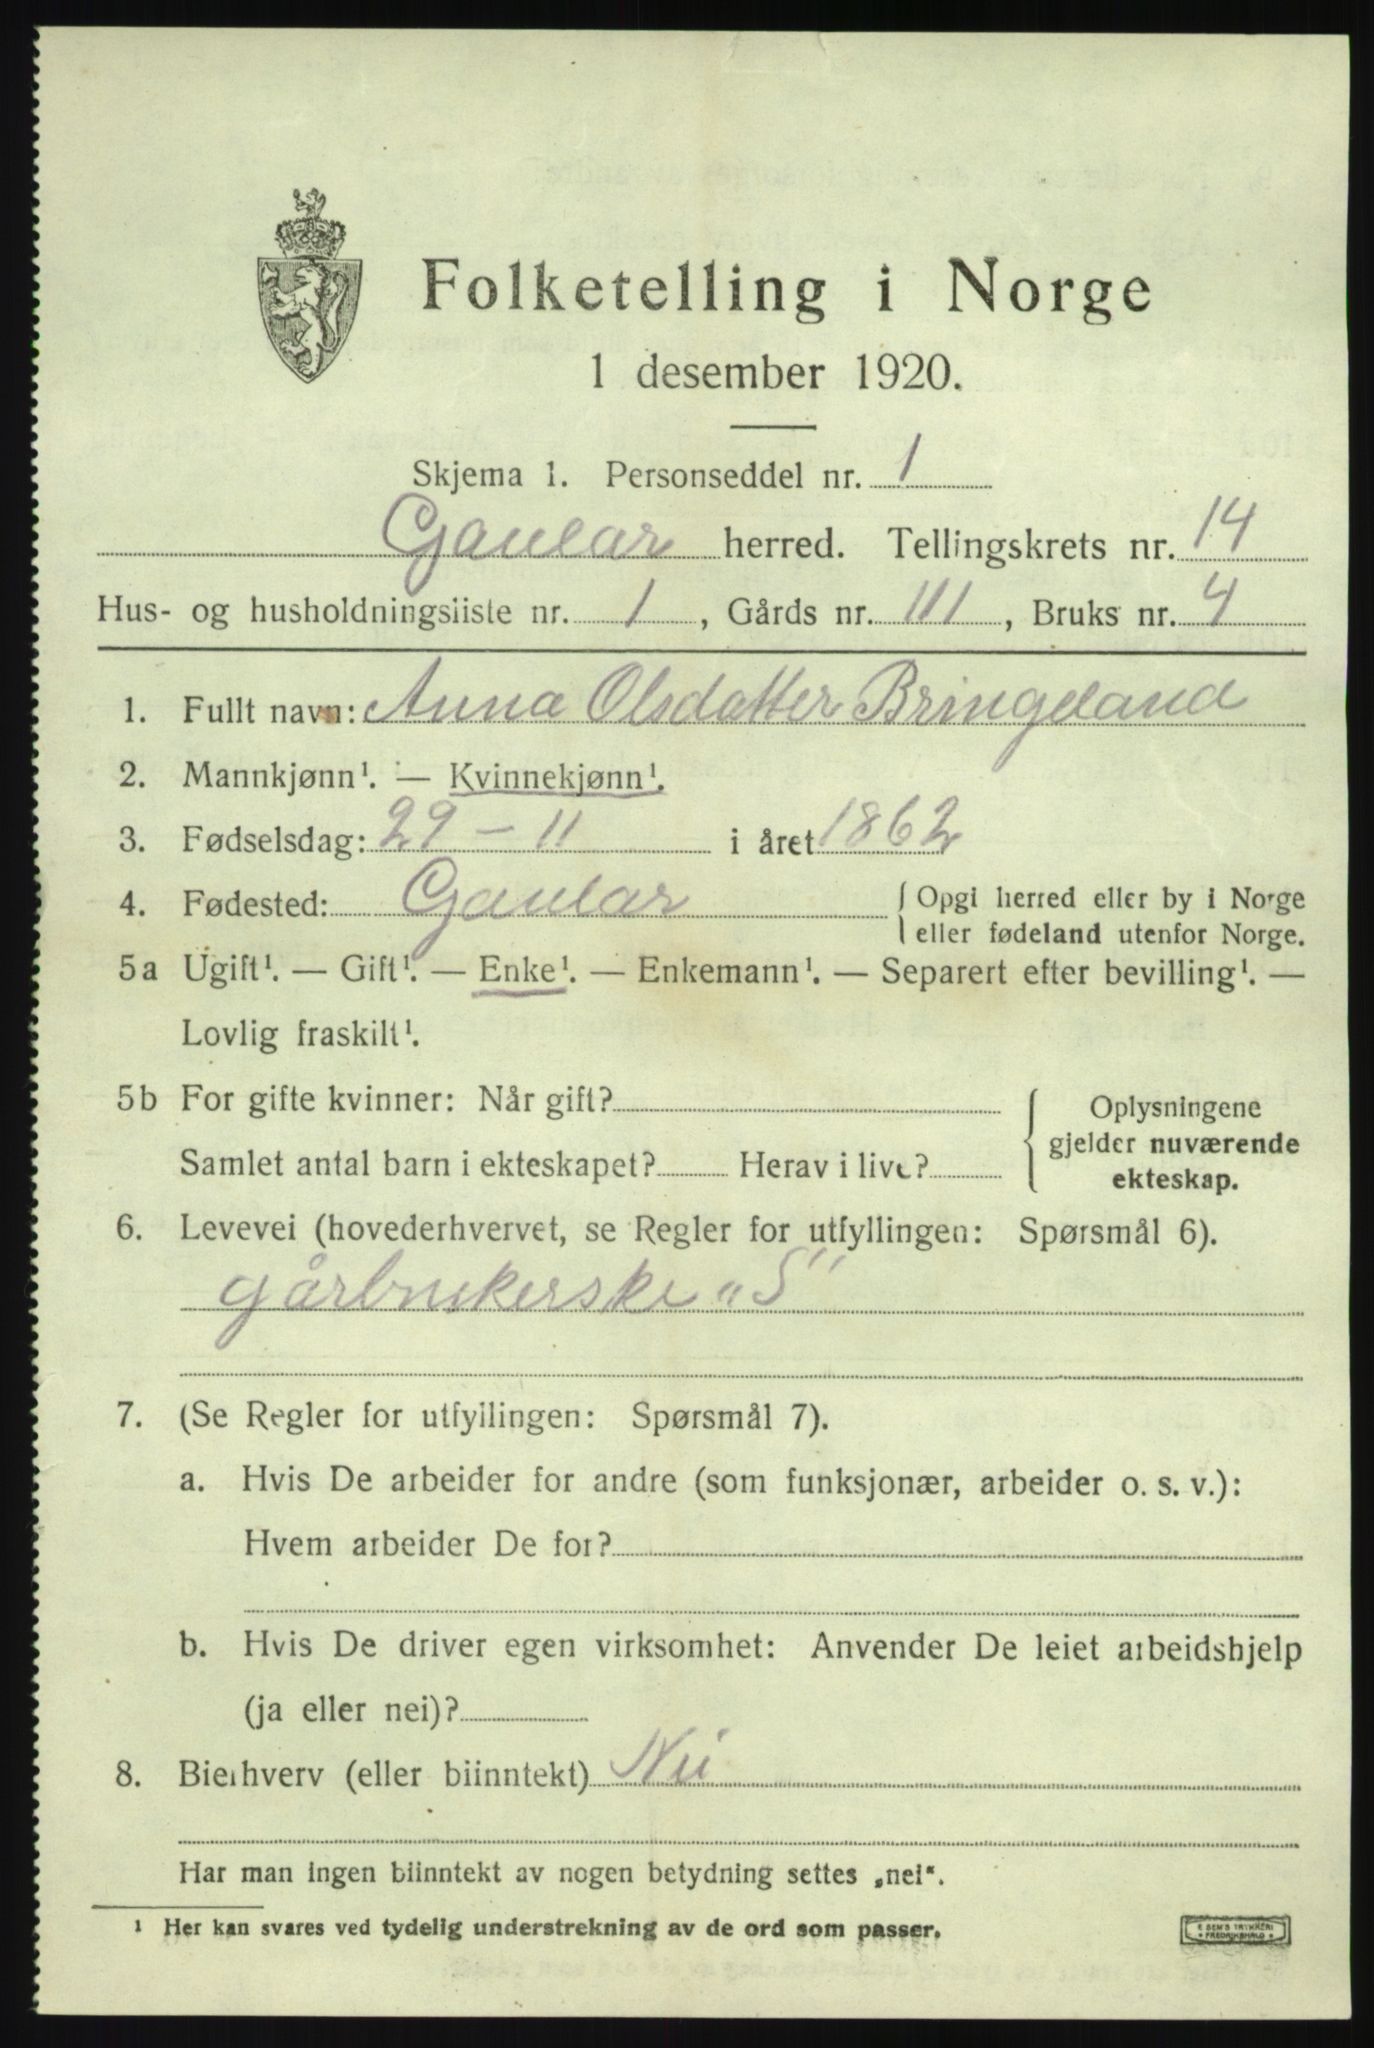 Folketelling i Norge
1 desember 1920.
Skjema 1. Personseddel nr. 1
Gaular herred. Tellingskrets nr. 14
Hus- og husholdningsliste nr. 1, Gårds nr. 111, Bruks nr. 4
1. Fullt navn: Anna Olsdatter Bringeland
2. Mannkjønn¹. — Kvinnekjønn¹.
3. Fødselsdag: 29 - 11 i året 1862
4. Fødested: Gaular { Opgi herred eller by i Norge
eller fødeland utenfor Norge.
5a Ugift¹. — Gift¹. — Enke¹. — Enkemann¹. — Separert efter bevilling¹. —
Lovlig fraskilt¹.
5b For gifte kvinner: Når gift?
Samlet antal barn i ekteskapet? Herav i live?
{ Oplysningene
gjelder nuværende
ekteskap.
6. Levevei (hovederhvervet, se Regler for utfyllingen: Spørsmål 6).
gårbrukerske „S"
7. (Se Regler for utfyllingen: Spørsmål 7).
a. Hvis De arbeider for andre (som funksjonær, arbeider o. s. v.):
Hvem arbeider De for?
b. Hvis De driver egen virksomhet: Anvender De leiet arbeidshjelp
(ja eller nei)?
8. Bierhverv (eller biinntekt) Nei
Har man ingen biinntekt av nogen betydning settes „nei“.
¹ Her kan svares ved tydelig understrekning av de ord som passer.
E SEM'S TRYKKERI
FREDRIKSHALD